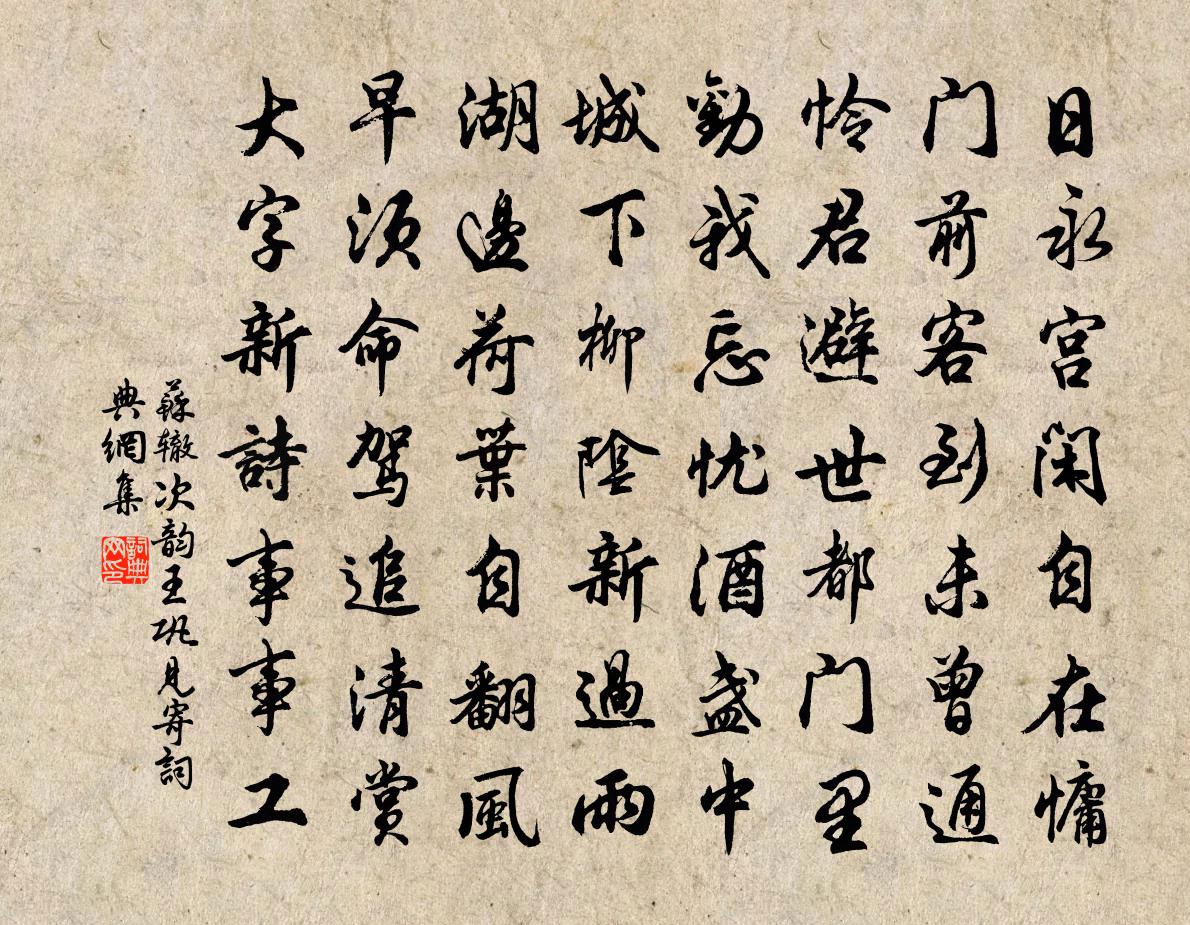 日永宫闲自在慵
门前客到未曾通
怜君避世都门里
勸我忘忧酒盏中
城下柳陰新過雨
湖邊荷葉自翻風
早须命驾追清赏
大字新詩事事工
蘇辙次韵王巩见寄詞
典網集
詞典
网印